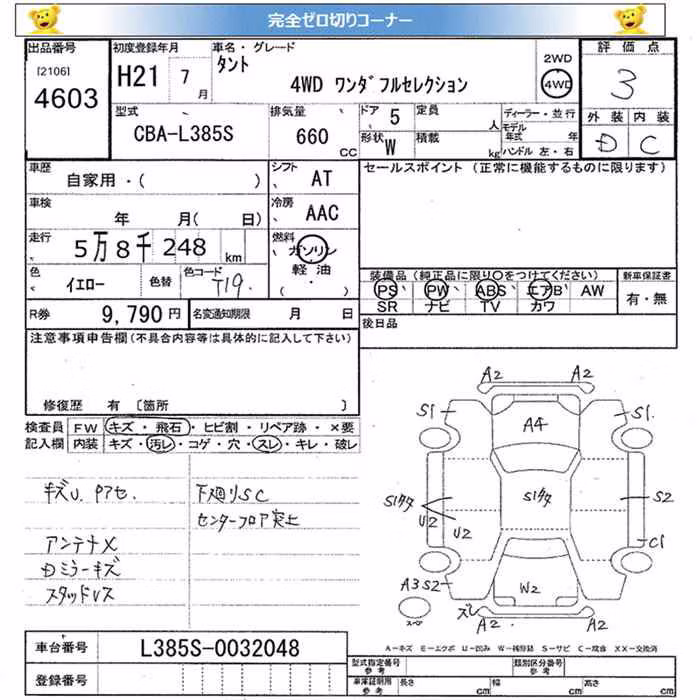 完全ゼロ切りコーナー
出品番号
[2106]
4603
初度登録年月
H21 7月
車名・グレード
タント
4WD ワンダフルセレクション
2WD
4WD
評価点
3
外装 内装
D C
型式
CBA-L385S
排気量
660
CC
ドア 5
形状 W
定員
人
積載
kg
ディーラー・並行
モデル年式 年
ハンドル 左・右
車歴
自家用・( )
シフト
AT
車検
年 月( 日)
冷房
AAC
走行
5万8千248 km
燃料
ガソリン
軽油
( ・ )
色
イエロー
色替
色コード
T19.
セールスポイント (正常に機能するものに限ります)
装備品 (純正品に限り○をつけてください)
PS PW ABS エアB AW
SR ナビ TV カワ
新車保証書
有・無
R券
9,790円
名変通知期限 月 日
後日品
注意事項申告欄(不具合内容等は具体的に記入して下さい)
修復歴 有 〔箇所 〕
検査員記入欄
FW キズ・飛石・ヒビ割・リペア跡・×要
内装 キズ・汚レ・コゲ・穴・スレ・キレ・破レ
キズU. Pアセ.
アンテナX
Dミラーキズ
スタッドレス
下廻りSC
センターフロア突上
A2 A2
S1 S1.
A4
S1クタ
U2
U2
S1クタ
S2
C1
A3 S2
W2
ズレ
A2 A2
スペア
A-キズ E-エクボ U-凹み W-補修跡 S-サビ C-腐食 XX-交換済
車台番号
L385S-0032048
登録番号
型式指定番号
参考
類別区分番号
参考
車庫証明用
参考
長さ cm
幅 cm
高さ cm